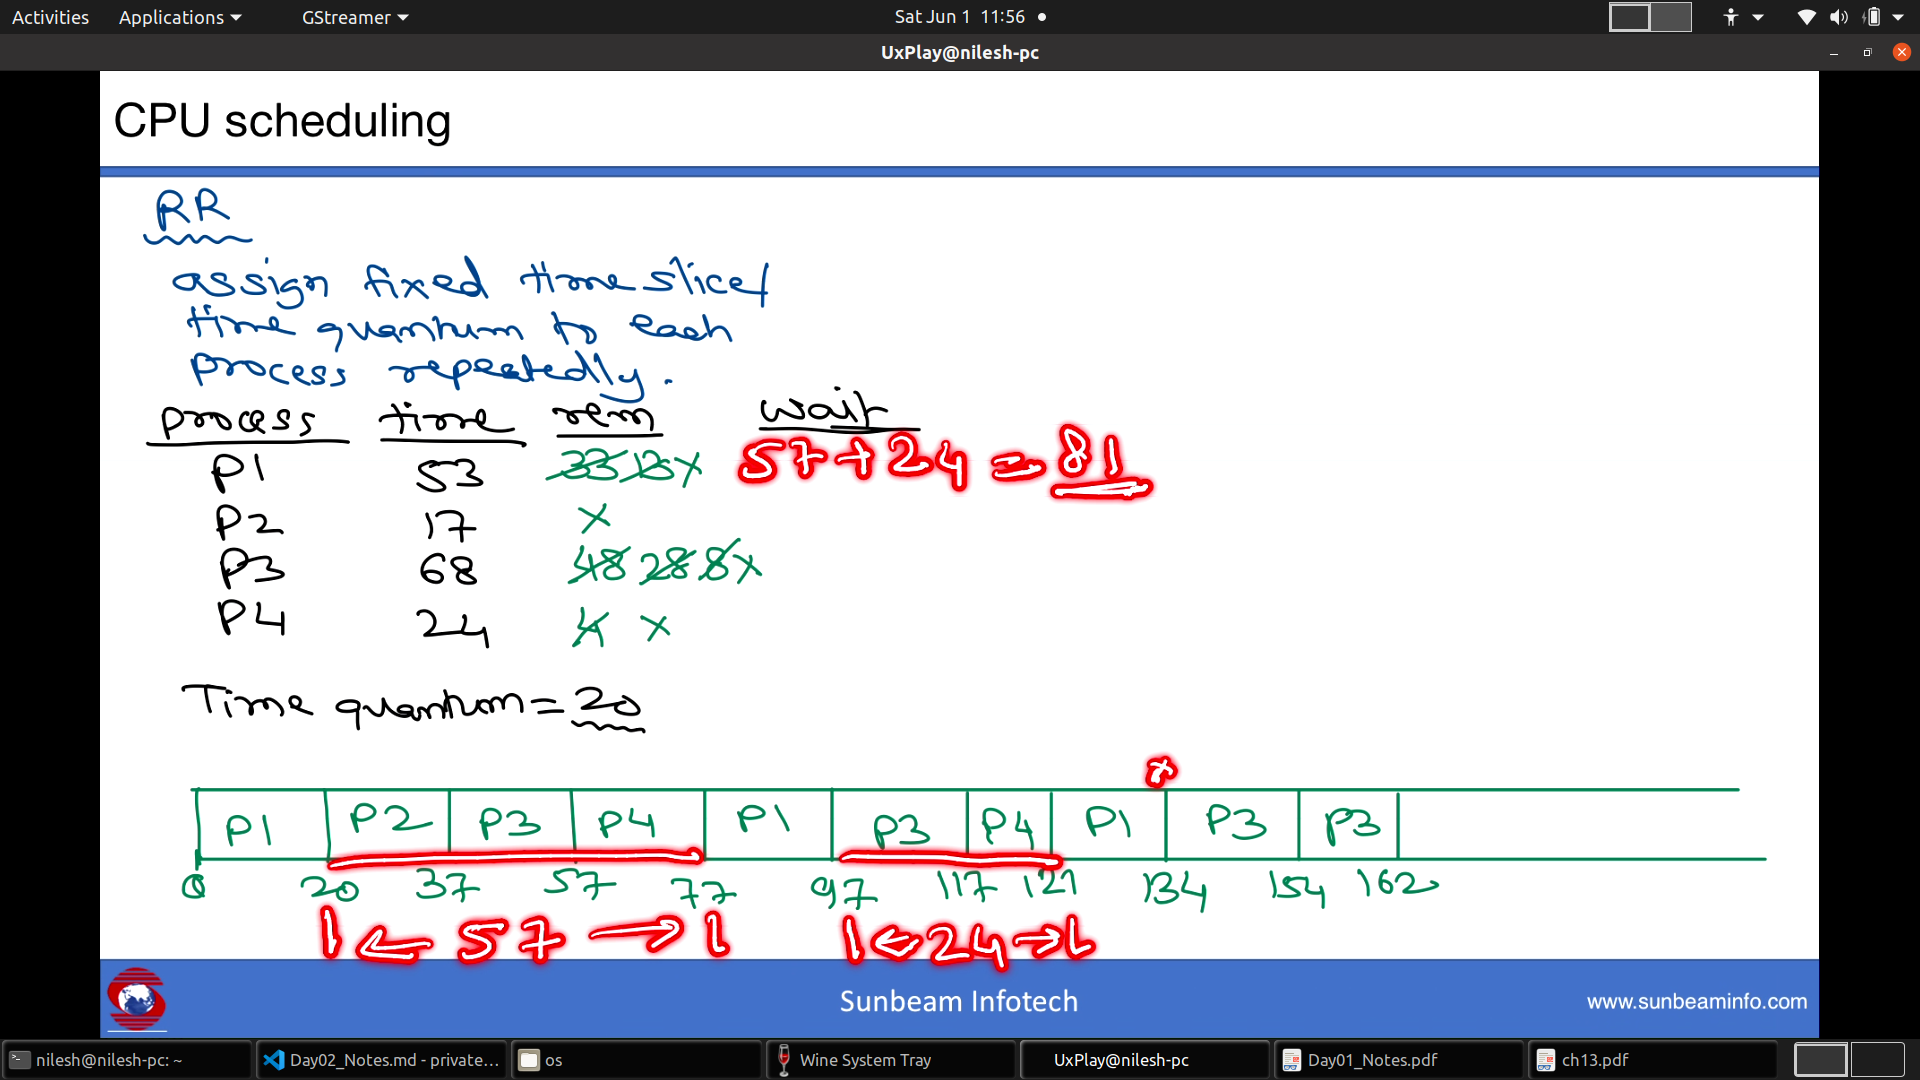 Activities Applications GStreamer Sat Jun 1 11:56
UxPlay@nilesh-pc
CPU scheduling
RR
assign fixed time slice/
time quantum to each
process repeatedly.
process time rem wait
P1 53 33 13 x 57+24=81
P2 17 x
P3 68 48 28 8 x
P4 24 4 x
Time quantum=20
x
P1 P2 P3 P4 P1 P3 P4 P1 P3 P3
0 20 37 57 77 97 117 121 134 154 162
|← 57 →| |←24→|
Sunbeam Infotech www.sunbeaminfo.com
nilesh@nilesh-pc: ~ Day02_Notes.md - private... os Wine System Tray UxPlay@nilesh-pc Day01_Notes.pdf ch13.pdf